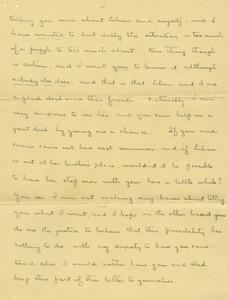 telling you more about Lilian and myself, and I
have wanted to but really the situation is too much
of a puzzle to tell much about. One thing though
is certain, and I want you to know it although
nobody else does, and that is that Lilian and I are
a good deal more than friends. Naturally I am
very anxious to see her, and you can help me a
great deal by giving me a chance. If you and
come out here next summer, and if Lilian
is out at her brothers place, wouldn't it be possible
to have her stop over with you here a little while?
You see I am not making any bones about telling
you what I want, and I hope on the other hand you
do me the justice to believe that this possibility has
nothing to do with my anxiety to have you come.
And also I would rather have you and
keep this part of this letter to yourselves.